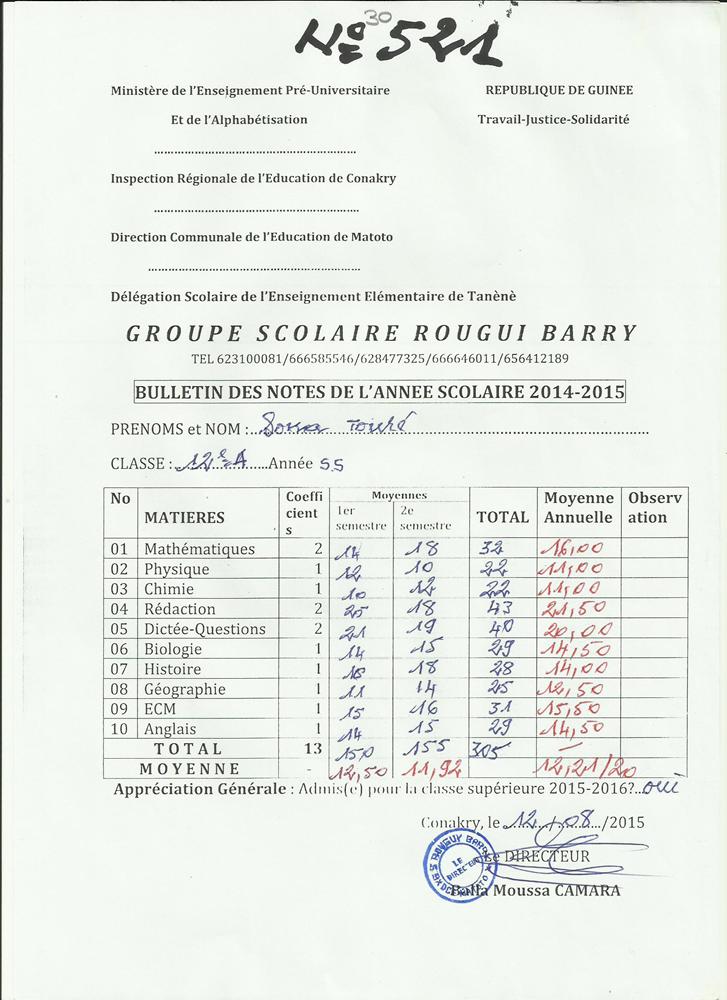 30
N° 521
Ministère de l'Enseignement Pré-Universitaire REPUBLIQUE DE GUINEE
Et de l'Alphabétisation Travail-Justice-Solidarité
Inspection Régionale de l'Education de Conakry
Direction Communale de l'Education de Matoto
Délégation Scolaire de l'Enseignement Elémentaire de Tanènè
GROUPE SCOLAIRE ROUGUI BARRY
TEL 623100081/666585546/628477325/666646011/656412189
BULLETIN DES NOTES DE L'ANNEE SCOLAIRE 2014-2015
PRENOMS et NOM : Touré
CLASSE : 12e A Année SS
No MATIERES Coefficients Moyennes 1er semestre 2e semestre TOTAL Moyenne Annuelle Observation
01 Mathématiques 2 14 18 32 16,00
02 Physique 1 12 10 22 11,00
03 Chimie 1 10 12 22 11,00
04 Rédaction 2 25 18 43 21,50
05 Dictée-Questions 2 21 19 40 20,00
06 Biologie 1 14 15 29 14,50
07 Histoire 1 18 28 14,00
08 Géographie 1 11 14 25 12,50
09 ECM 1 15 16 31 15,50
10 Anglais 1 14 15 29 14,50
TOTAL 13 150 155 305 –
MOYENNE - 12,50 11,92 12,21/20
Appréciation Générale : Admis(e) pour la classe supérieure 2015-2016?..oui
Conakry, le 12/08/2015
Le DIRECTEUR
LE DIRECTEUR
Balla Moussa CAMARA